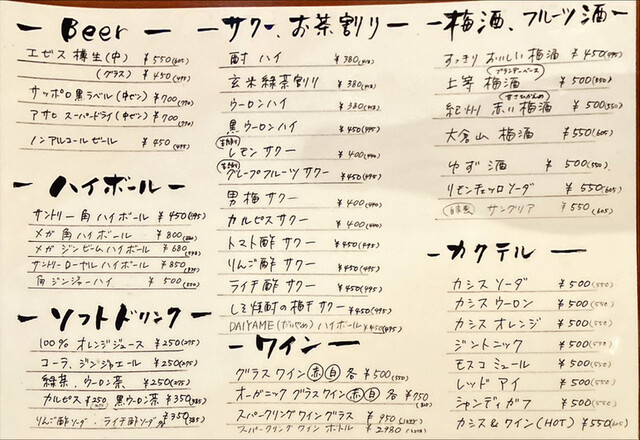 Beer
エビス 樽生(中) ¥550(605)
(グラス) ¥450(495)
サッポロ黒ラベル(中ビン) ¥700(770)
アサヒ スーパードライ(中ビン) ¥700(770)
ノンアルコールビール ¥450(495)
ハイボール
サントリー 角 ハイボール ¥450(495)
メガ 角ハイボール ¥800
メガ ジンビームハイボール ¥680
サントリーローヤル ハイボール ¥850
角ジンジャーハイ ¥500(550)
ソフトドリンク
100% オレンジジュース ¥250(275)
コーラ、ジンジャエール ¥250(275)
緑茶、ウーロン茶 ¥250(275)
カルピス ¥250 黒ウーロン茶 ¥350(385)
りんご酢ソーダ・ライチ酢ソーダ ¥350(385)
サワー、お茶割り
酎ハイ ¥380(418)
玄米緑茶割り ¥380(418)
ウーロンハイ ¥380(418)
黒ウーロンハイ ¥450(495)
レモンサワー ¥400(440)
グレープフルーツサワー ¥450(495)
男梅サワー ¥400(440)
カルピスサワー ¥400(440)
トマト酢サワー ¥450(495)
りんご酢サワー ¥450(495)
ライチ酢サワー ¥450(495)
しそ焼酎の梅干サワー ¥450(495)
DAIYAME(だいやめ)ハイボール ¥450(495)
ワイン
グラスワイン 赤 白 各 ¥500(550)
オーガニック グラスワイン 赤 白 各 ¥750
スパークリングワイン グラス ¥950
スパークリングワイン ボトル ¥2980
梅酒、フルーツ酒
すっきり おいしい 梅酒 ¥450(495)
上等 梅酒 ブランデーベース ¥500(550)
紀州 赤い梅酒 ¥500(550)
大倉山 梅酒 ¥550(605)
ゆず酒 ¥500(550)
リモンチェッロソーダ ¥550(605)
自家製 サングリア ¥550(605)
カクテル
カシス ソーダ ¥500(550)
カシス ウーロン ¥500(550)
カシス オレンジ ¥500(550)
ジントニック ¥500(550)
モスコミュール ¥500(550)
レッド アイ ¥500(550)
シャンディガフ ¥500(550)
カシス&ワイン(HOT) ¥550(605)